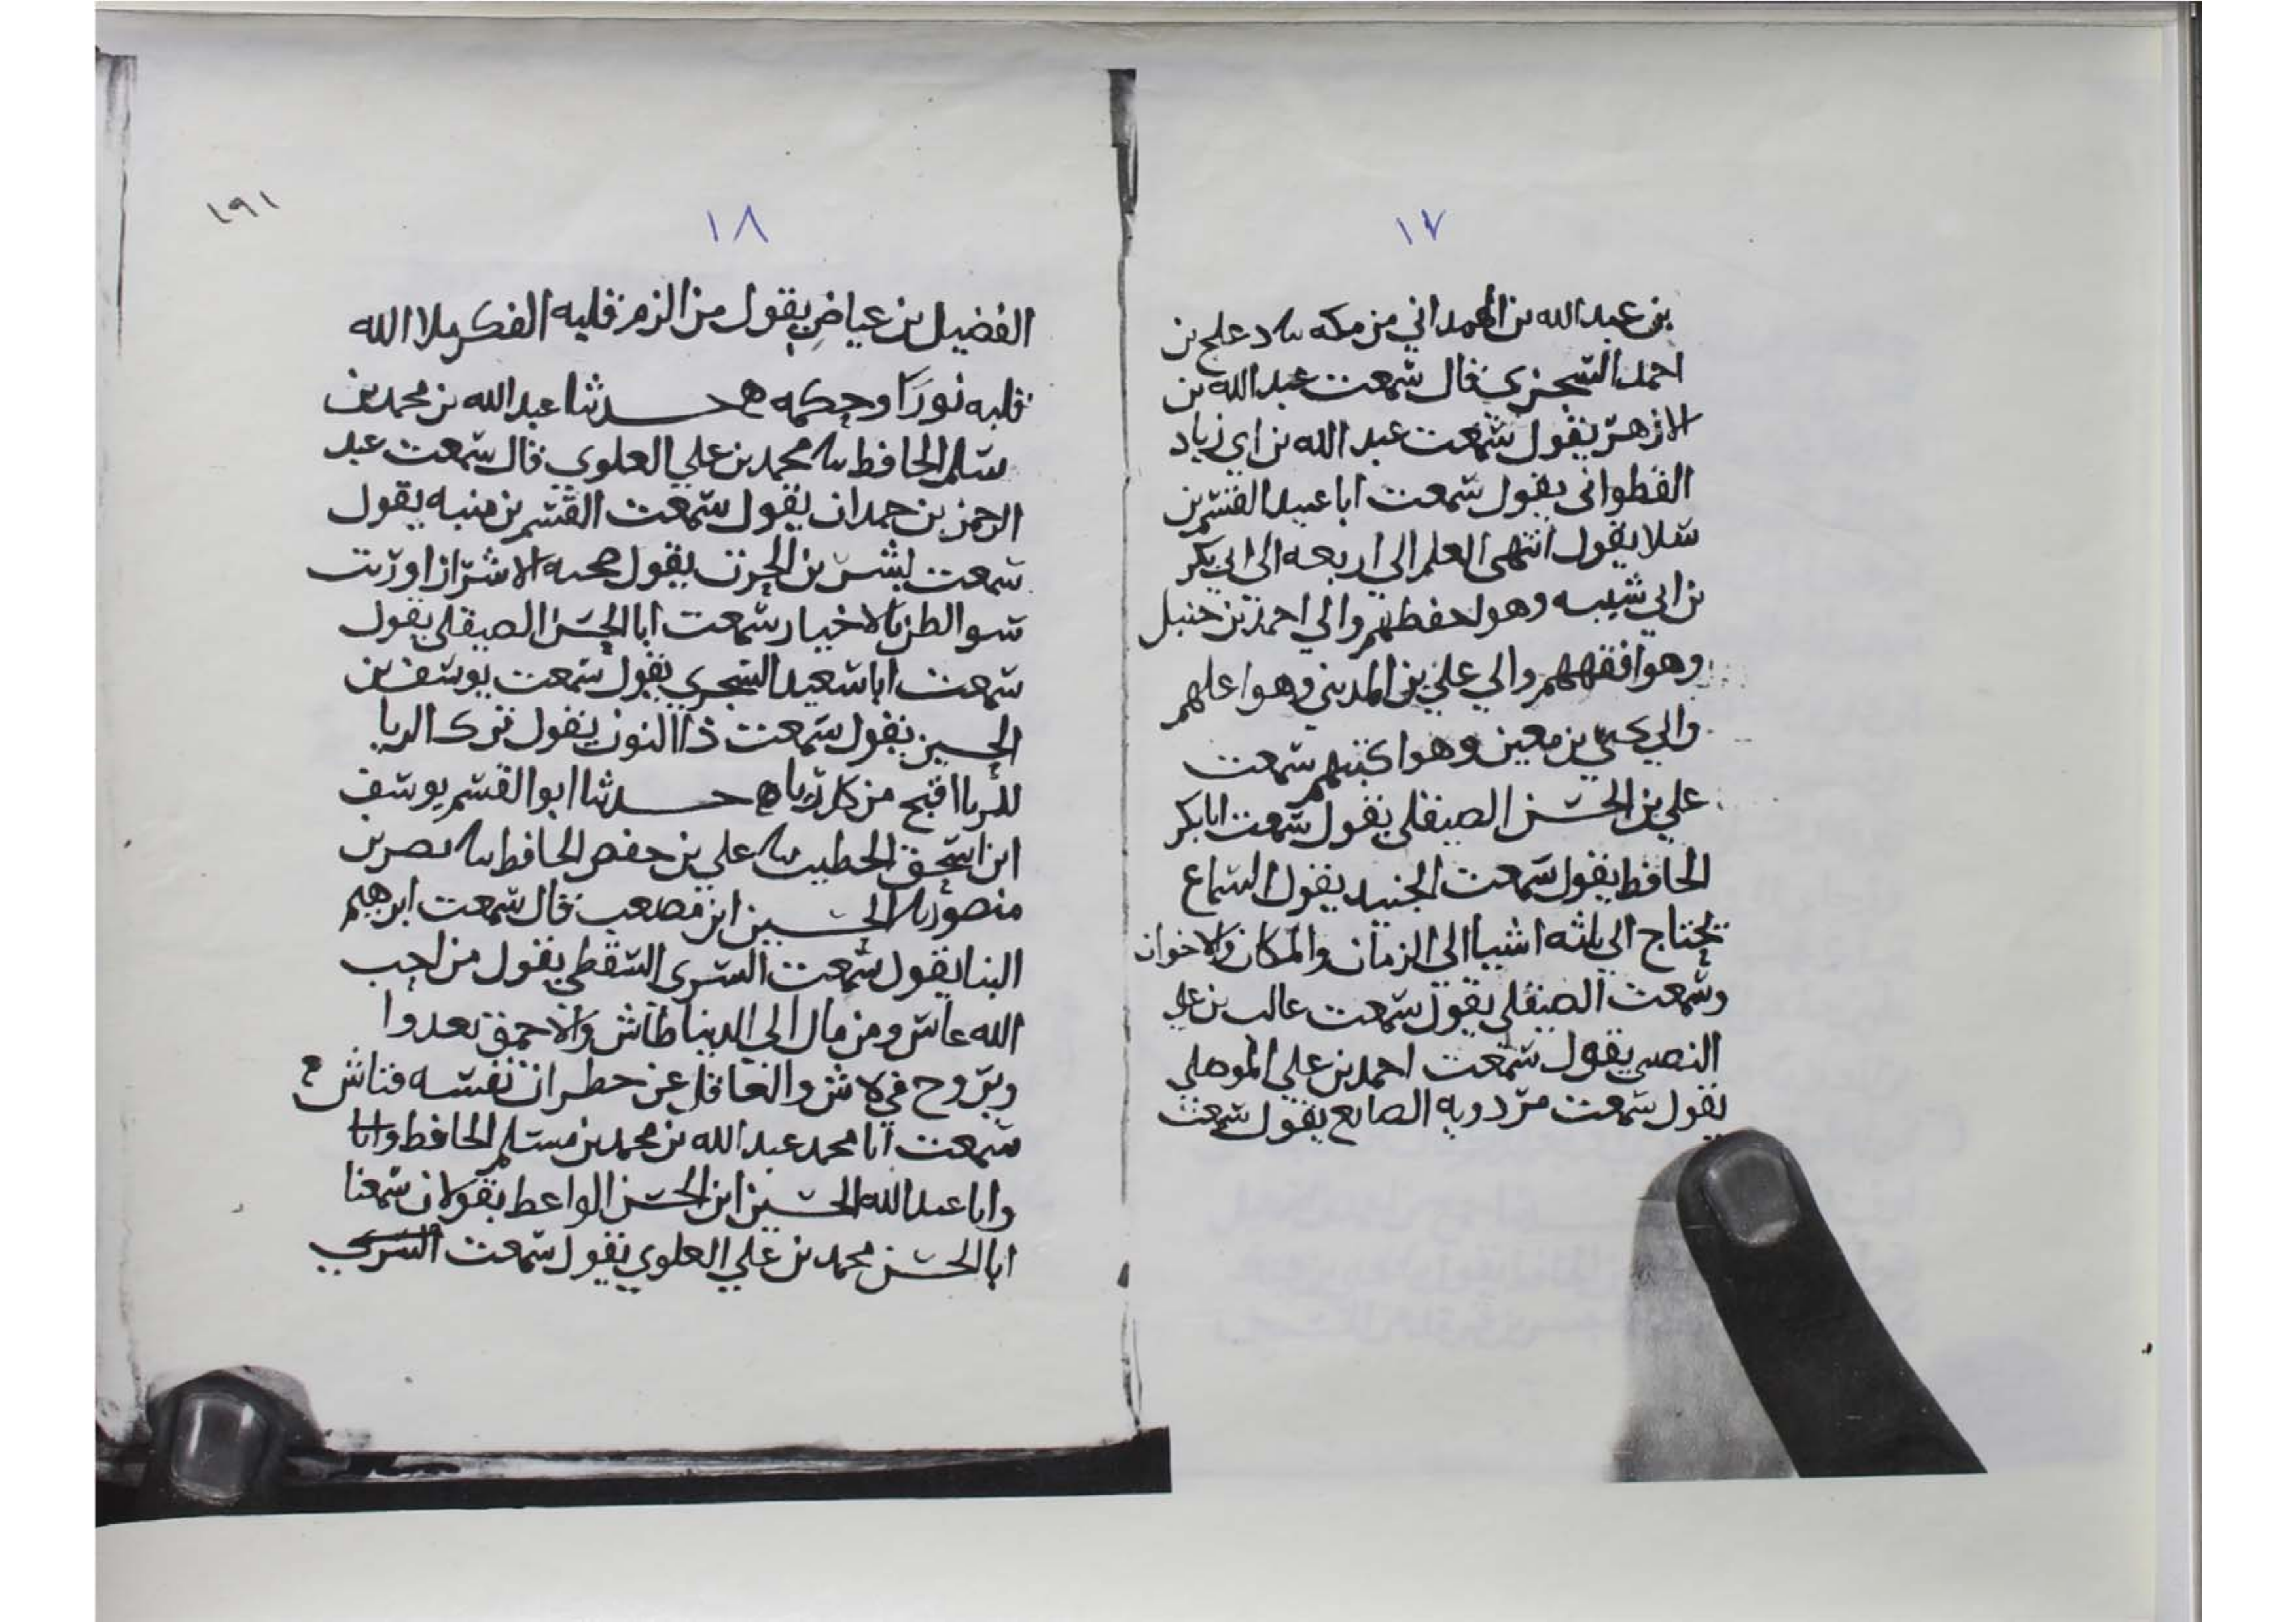 ١٧
بن عبدالله بن الهمداني من مكه سا دعلج بن
احمد السجزي قال سمعت عبد الله بن
الازهر يقول سمعت عبد الله بن ابي زياد
القطواني يقول سمعت ابا عبيد القسم بن
سلا يقول انتهى العلم الى اربعه الى ابي بكر
بن ابي شيبه وهو احفظهم والي احمد بن حنبل
وهو افقههم والي علي بن المديني وهو اعلمهم
والي يحيى بن معين وهو اكتبهم سمعت
علي بن الحسن الصيقلي يقول سمعت ابا بكر
الحافظ يقول سمعت الجنيد يقول السماع
يحتاج الى ثلثه اشيا الى الزمان والمكان والاخوان
وسمعت الصيقلي يقول سمعت غالب بن علي
يقول سمعت احمد بن علي الموصلي
يقول سمعت مردويه الصايغ يقول سمعت
١٨
١٩١
الفضيل بن عياض يقول من الزم قلبه الفكر ملا الله
قلبه نورا وحكمه ه حدثنا عبدالله بن محمد بن
مسلم الحافظ سا محمد بن علي العلوي قال سمعت عبد
الرحمن بن حمدان يقول سمعت القسم بن منبه يقول
سمعت بشر بن الحرث يقول صحبه الاشرار اورثت
سو الظن بالاخيار سمعت ابا الحسن الصيقلي يقول
سمعت ابا سعيد السجزي يقول سمعت يوسف بن
الحسين يقول سمعت ذا النون يقول ترك الريا
للريا اقبح من كل ريا ه حدثنا ابو القسم يوسف
ابن اسحق الخطيب سا علي بن حفص الحافظ سا نصر بن
منصور سا الحسين ابن مصعب قال سمعت ابرهيم
البنا يقول سمعت السري السقطي يقول من احب
الله عاش ومن مال الى الدينا طاش والاحمق يغدوا
ويروح في لاش والعاقل عن خطرات نفسه فتاش
سمعت ابا محمد عبد الله بن محمد بن مسلم الحافظ وابا
وابا عبد الله الحسين ابن الحسن الواعظ يقولان سمعنا
ابا الحسن محمد بن علي العلوي يقول سمعت السري